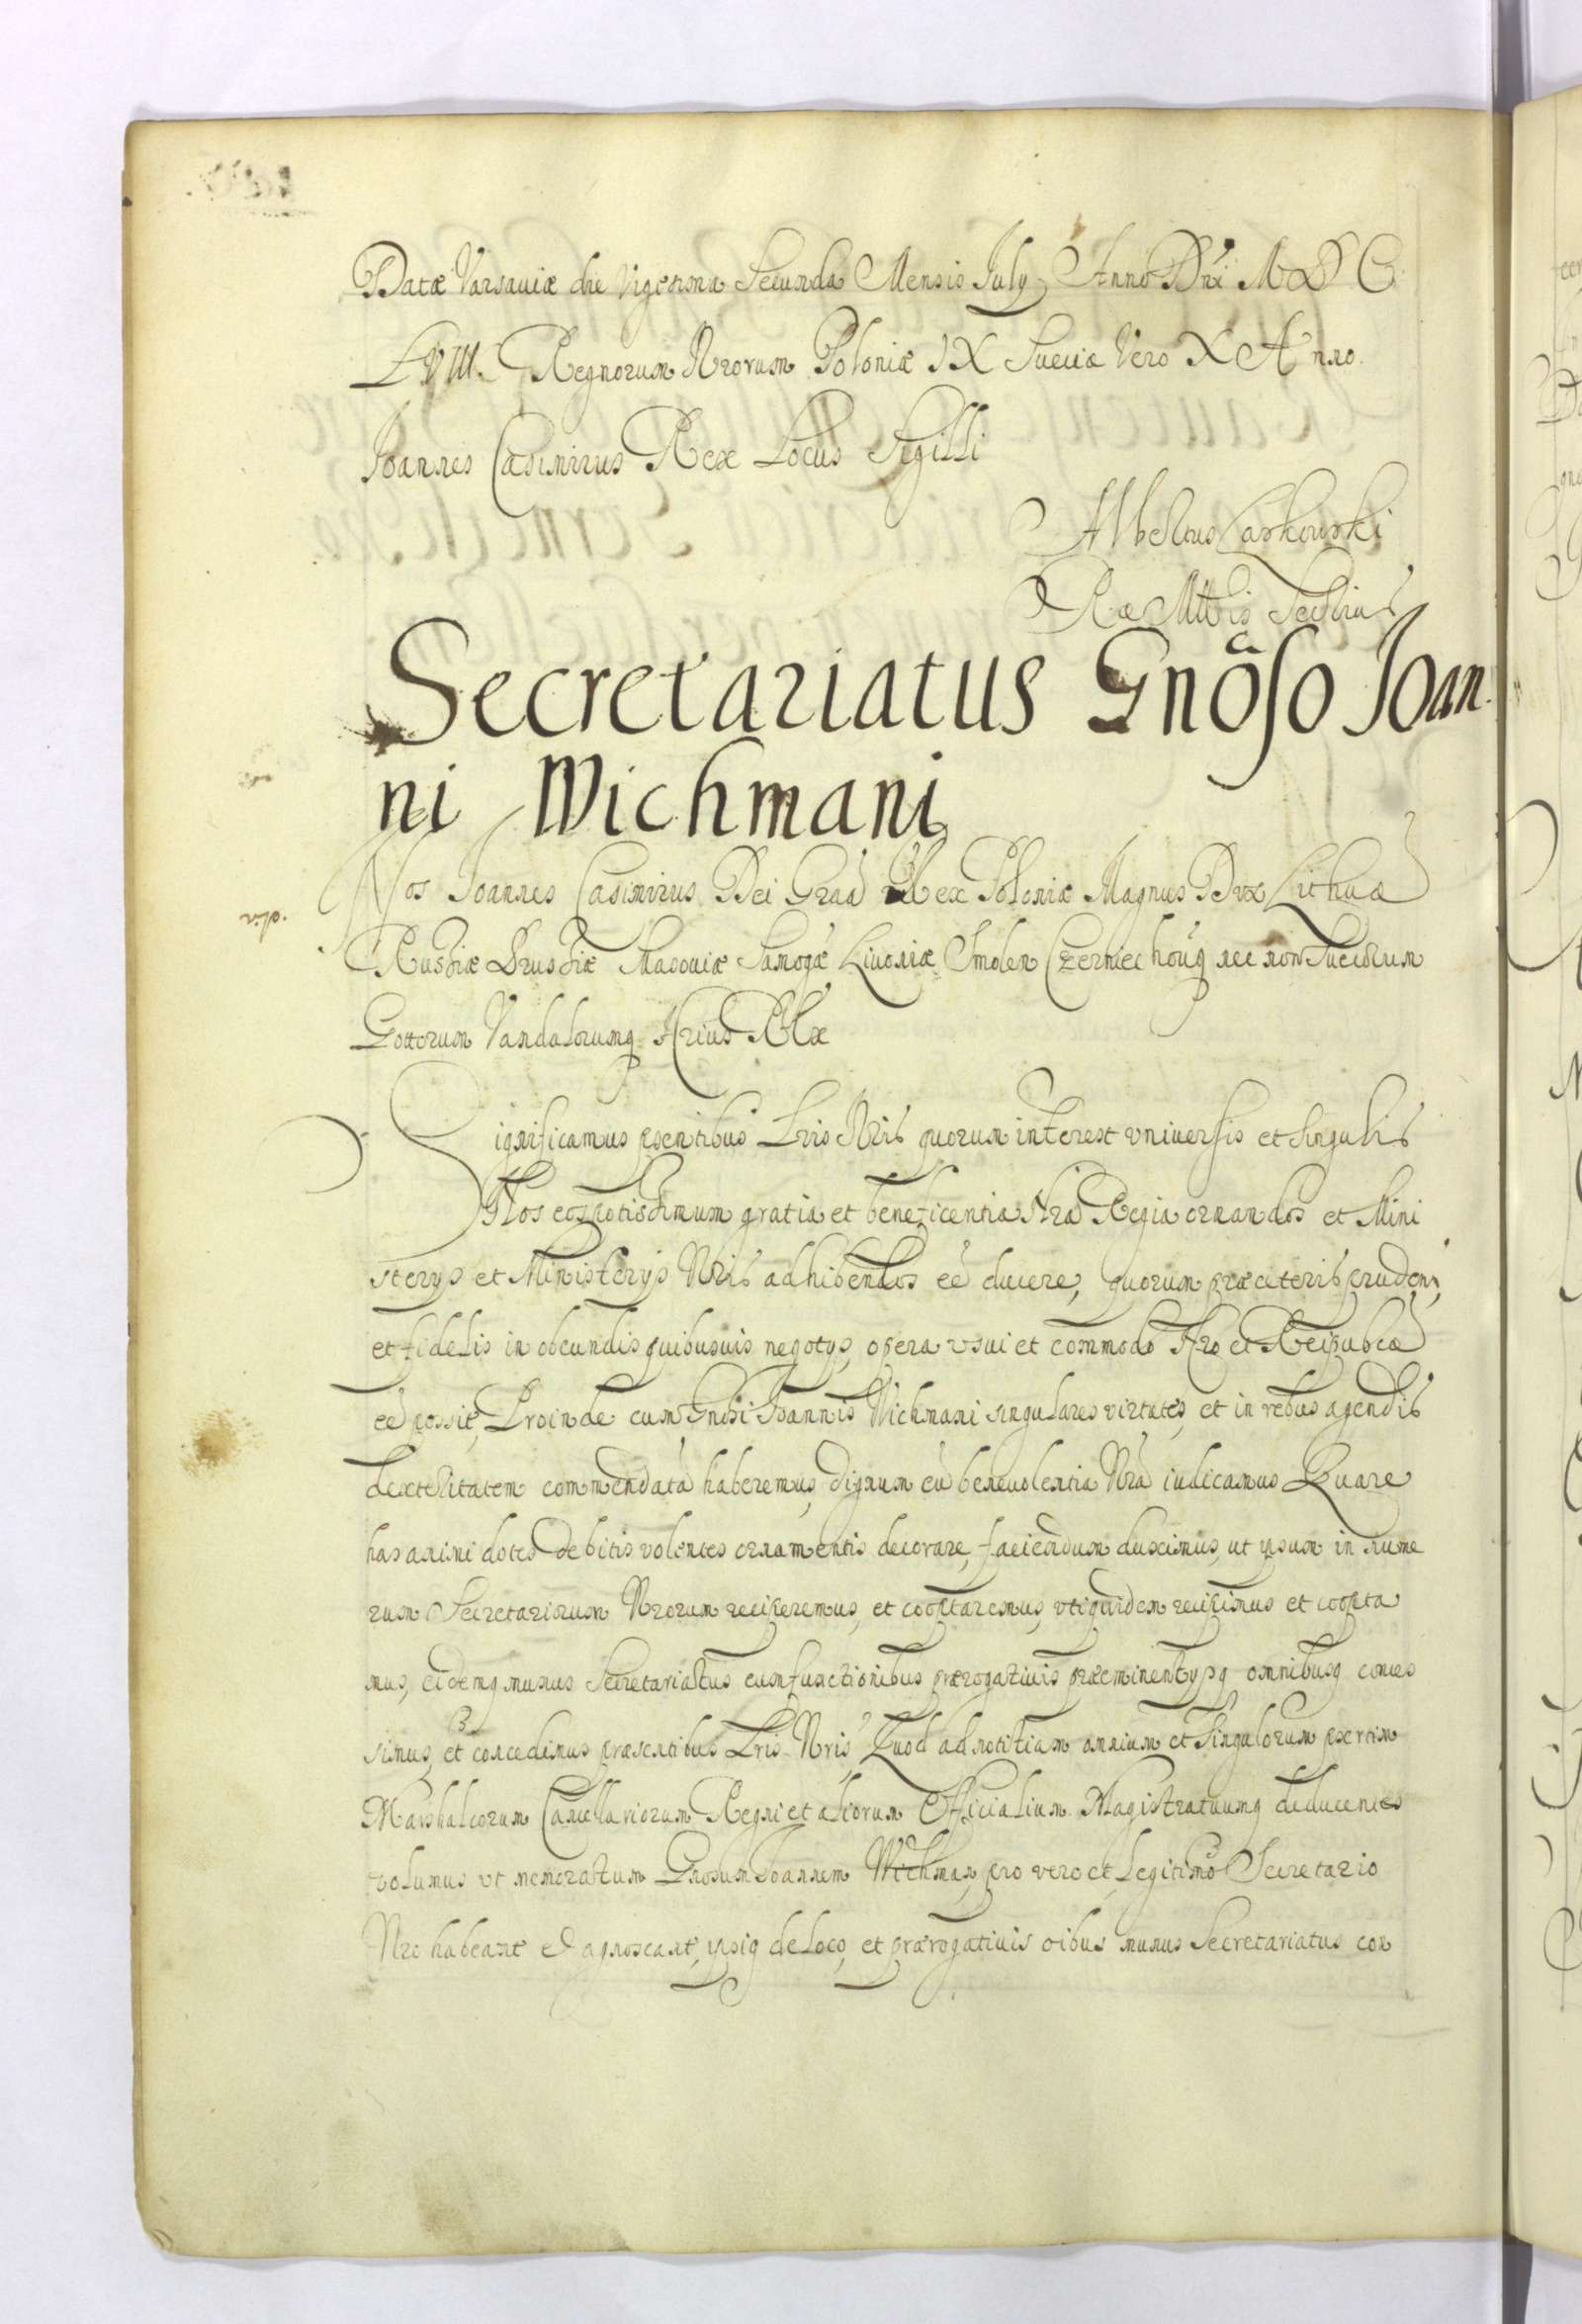 Datæ Varsaviæ die Vigesima Secunda Mensis July Anno Dni M D C
LVIII. Regnorum Nrorum Poloniæ IX Sueciæ Vero X Anno.
Joannes Casimirus Rex Locus Sigilli
Albertus Laskowski
Ræ Mttis Secrius
Secretariatus Gnõso Joan
ni Wichmani
Nos Joannes Casimirus Dei Graa Rex Poloniæ Magnus Dux Lithuæ
Russiæ Prussiæ Masoviæ Samogæ Livoniæ Smolen Czerniechouq nec non Suecorum
Gottorum Vandalorumq Hrius Rex
Significamus psentibus Lris Nris quorum interest vniversis et singulis
Nos eos potissimum gratia et beneficentia Nra Regia ornandos et Mini
sterys et Ministerys Nris adhibendos eê ducere, quorum præ cæteris prudens,
et fidelis in obeundis quibusuis negotys, opera vsui et commodo Nro et Reipubcæ
eê possit, Proinde cum Gnosi Joannis Wichmani singulares virtutes, et in rebus agendis
dexteritatem commendatã haberemus, dignum eũ beneuolentia Nra iudicamus Quare
has animi dotes debitis volentes ornamentis decorare, faciendum duximus, ut ipsum in nume
rum Secretariorum Nrorum reciperemus, et cooptaremus, vti quidem recipimus et coopta
mus, eidemq munus Secretariatus cum functionibus prærogatiuis præeminentysq omnibusq conces
simus, et concedimus præsentibus Lris Nris, Quod ad notitiam omnium et Singulorum psertim
Marshalcorum Cancellariorum Regni et aliorum Officialium Magistratuumq deducentes
volumus vt memoratum Gnosum Joannem Wichman, pro vero et Legitimo Secretario
Nro habeant et agnoscant, ipsiq de Loco, et prærogatiuis oibus munus Secretariatus con